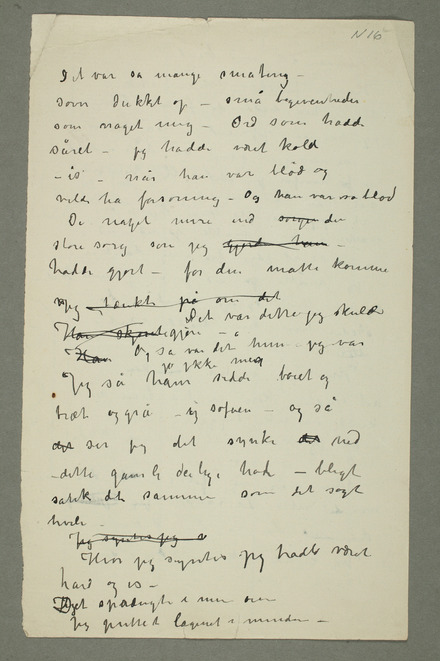 N 16
Det var så mange småting –
som dukket op – små begivenheder
som naget mig – Ord som hadde
såret – jeg hadde været kold
– is – når han var blød og
vilde ha forsoning – Og han var så blød
De naget mere end sorgen den
store sorg som jeg gjorde ham –
hadde gjort – for den måtte komme
jeg tænkte på om det
Det var dette jeg skulde
Han gjøre –
Han Og så var det hun – jeg var
jo ikke meg
Jeg så ham sidde bøiet og
træt og grå – i sofaen – og så
det ser jeg det synke det ned
– dette gamle deilige hode – bligt
satok sammen som det søgt
hvile –
Jeg syntes jeg
Hvor jeg syntes jeg hadde været
hard og is –
Det sprængte i min
Jeg puttet lagenet i munden –